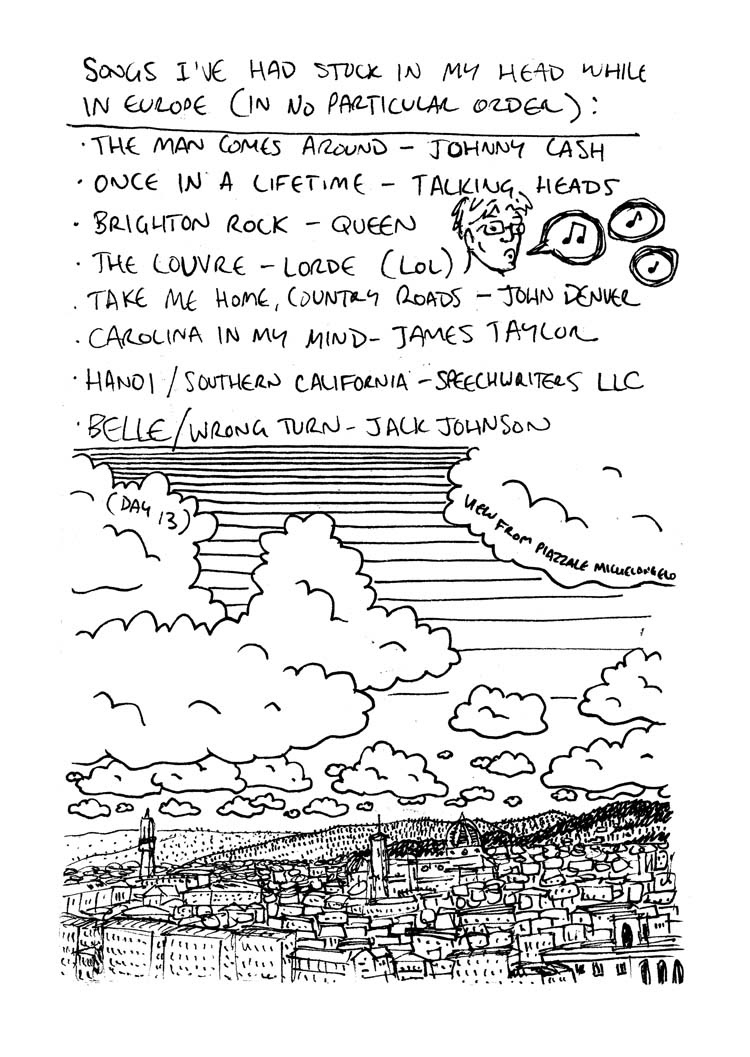 SONGS I'VE HAD STUCK IN MY HEAD WHILE
IN EUROPE (IN NO PARTICULAR ORDER):
· THE MAN COMES AROUND – JOHNNY CASH
· ONCE IN A LIFETIME – TALKING HEADS
· BRIGHTON ROCK – QUEEN
· THE LOUVRE – LORDE (LOL)
· TAKE ME HOME, COUNTRY ROADS – JOHN DENVER
· CAROLINA IN MY MIND – JAMES TAYLOR
· HANOI / SOUTHERN CALIFORNIA – SPEECHWRITERS LLC
· BELLE / WRONG TURN – JACK JOHNSON
(DAY 13)
VIEW FROM PIAZZALE MICHELANGELO